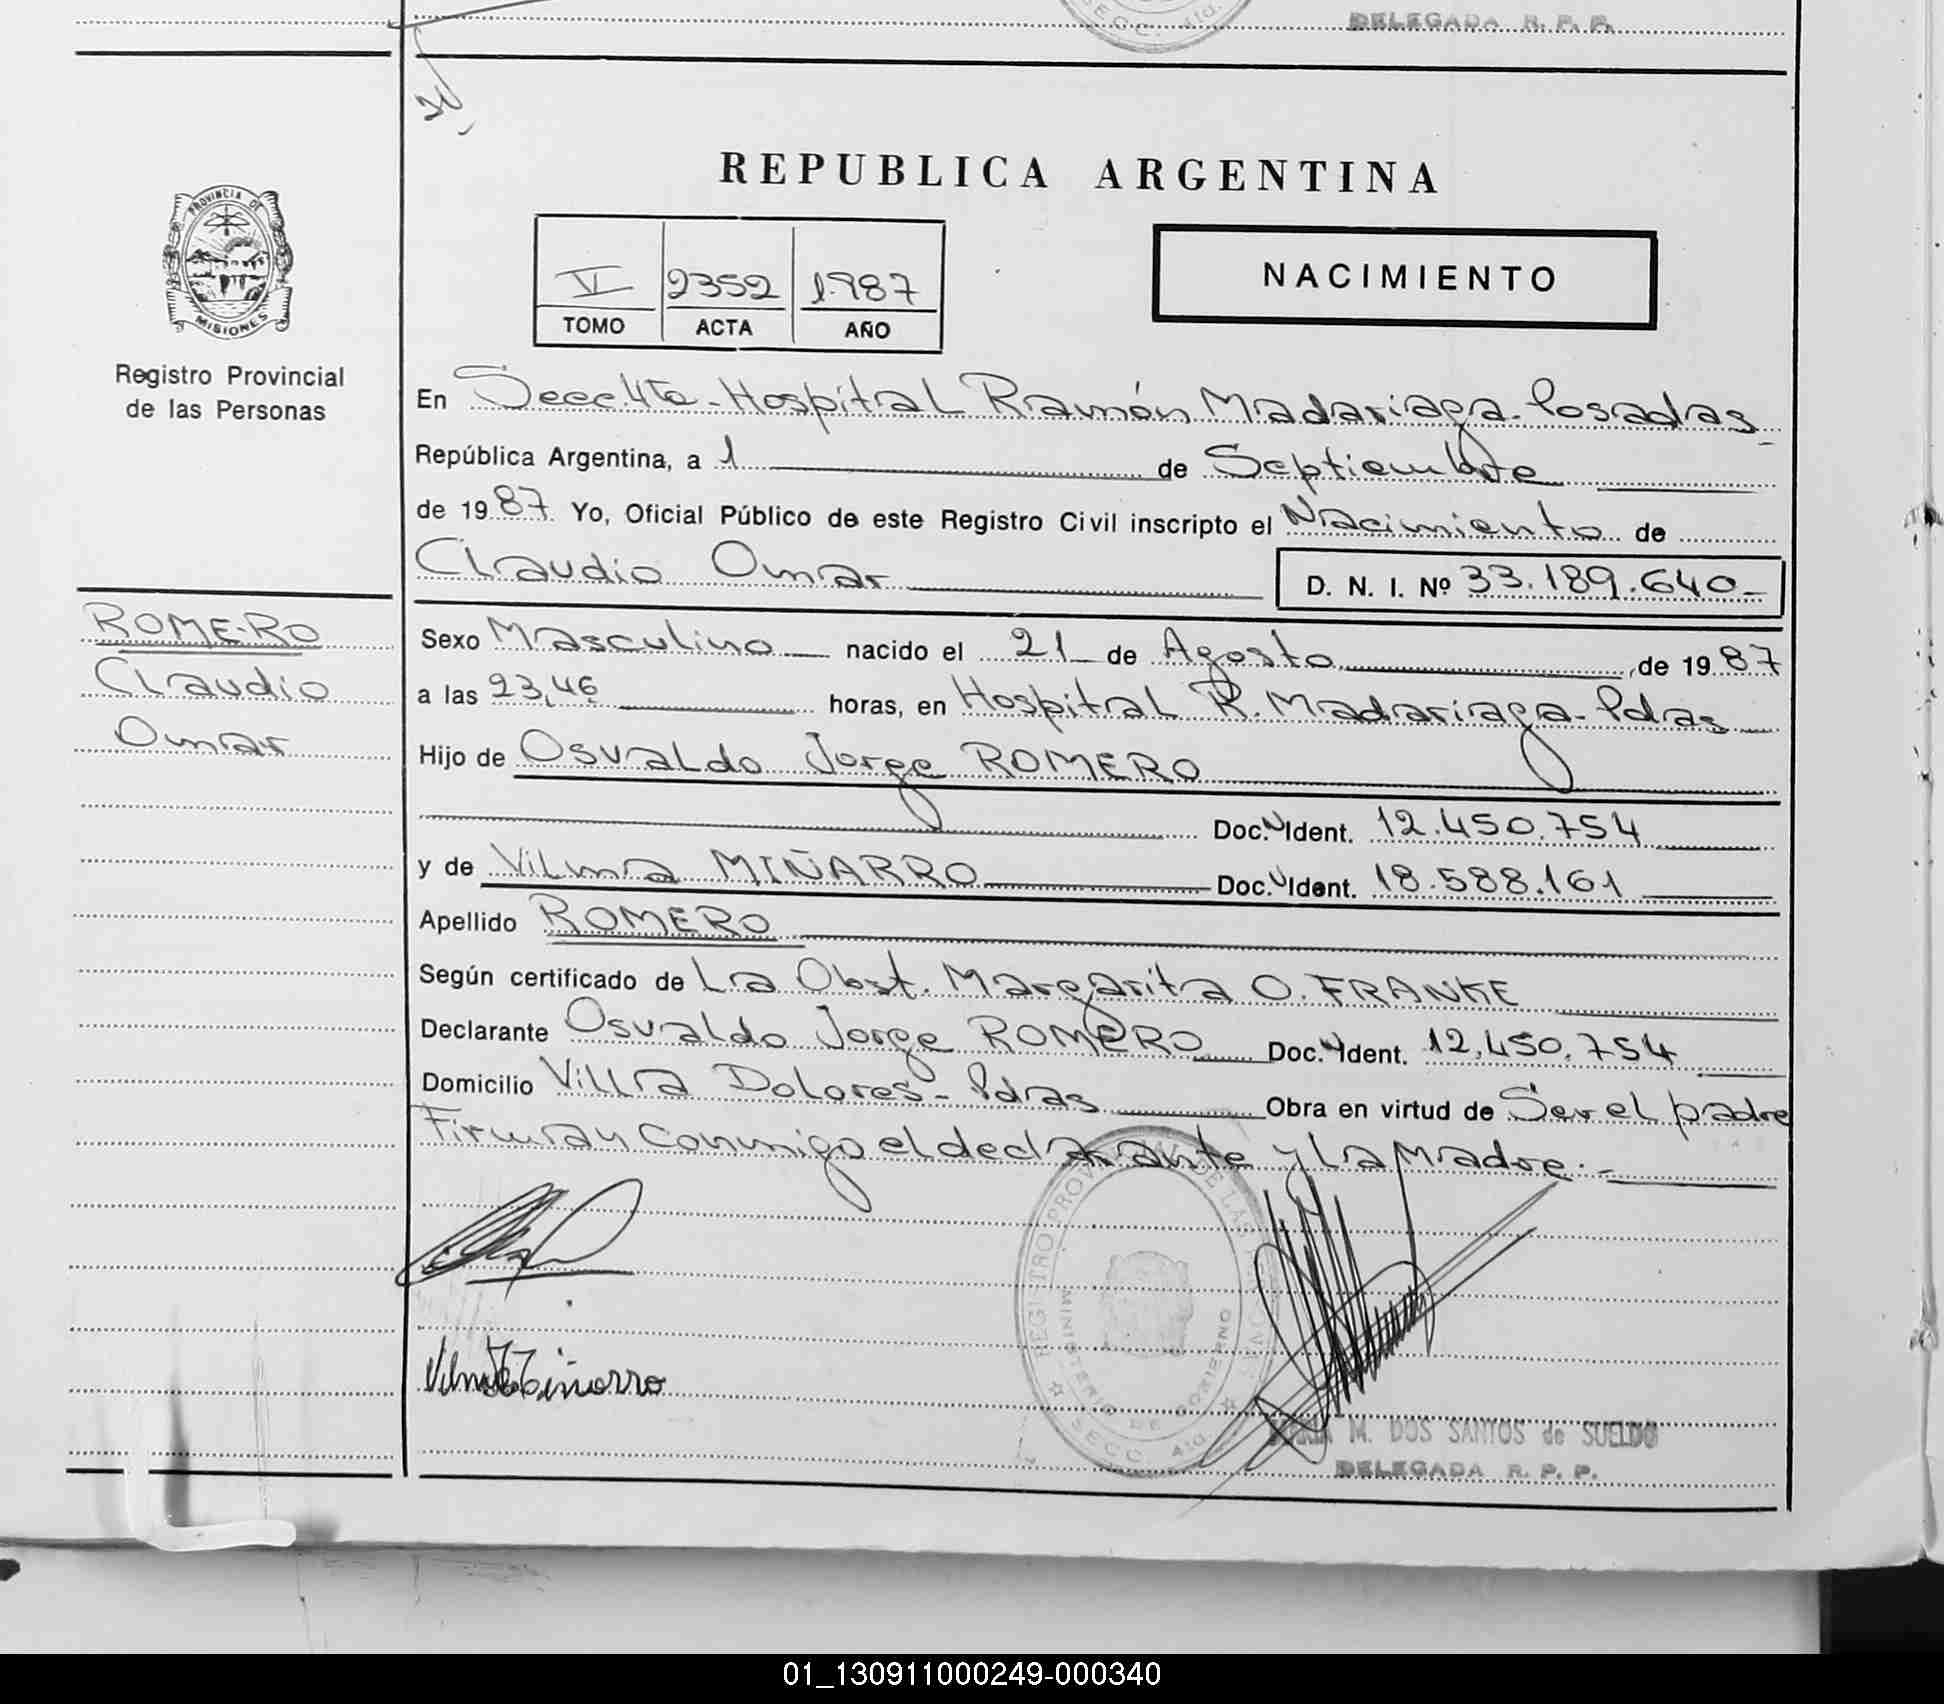 DELEGADA R. P. P.
SECC. 4ta.
REPUBLICA ARGENTINA
PROVINCIA DE
MISIONES
Registro Provincial
de las Personas
VI 2352 1.987
TOMO ACTA AÑO
NACIMIENTO
En Secc 4ta - Hospital Ramón Madariaga - Posadas
República Argentina, a 1 de Septiembre
de 1987 Yo, Oficial Público de este Registro Civil inscripto el Nacimiento de
Claudio Omar D. N. I. Nº 33.189.640-
ROMERO
Claudio
Omar
Sexo Masculino nacido el 21 de Agosto, de 1987
a las 23,46 horas, en Hospital R. Madariaga - Pdas
Hijo de Osvaldo Jorge ROMERO
Doc. Ident. 12.450.754
y de Vilma MIÑARRO Doc. Ident. 18.588.161
Apellido ROMERO
Según certificado de La Obst. Margarita O. FRANKE
Declarante Osvaldo Jorge ROMERO Doc. Ident. 12.450.754
Domicilio Villa Dolores - Pdas Obra en virtud de Ser el padre
Firman conmigo el declarante y la madre.-
REGISTRO PROVINCIAL DE LAS
MINISTERIO DE GOBIERNO
SECC. 4ta.
Vilma Miñarro
M. DOS SANTOS de SUELDO
DELEGADA R. P. P.
01_130911000249-000340